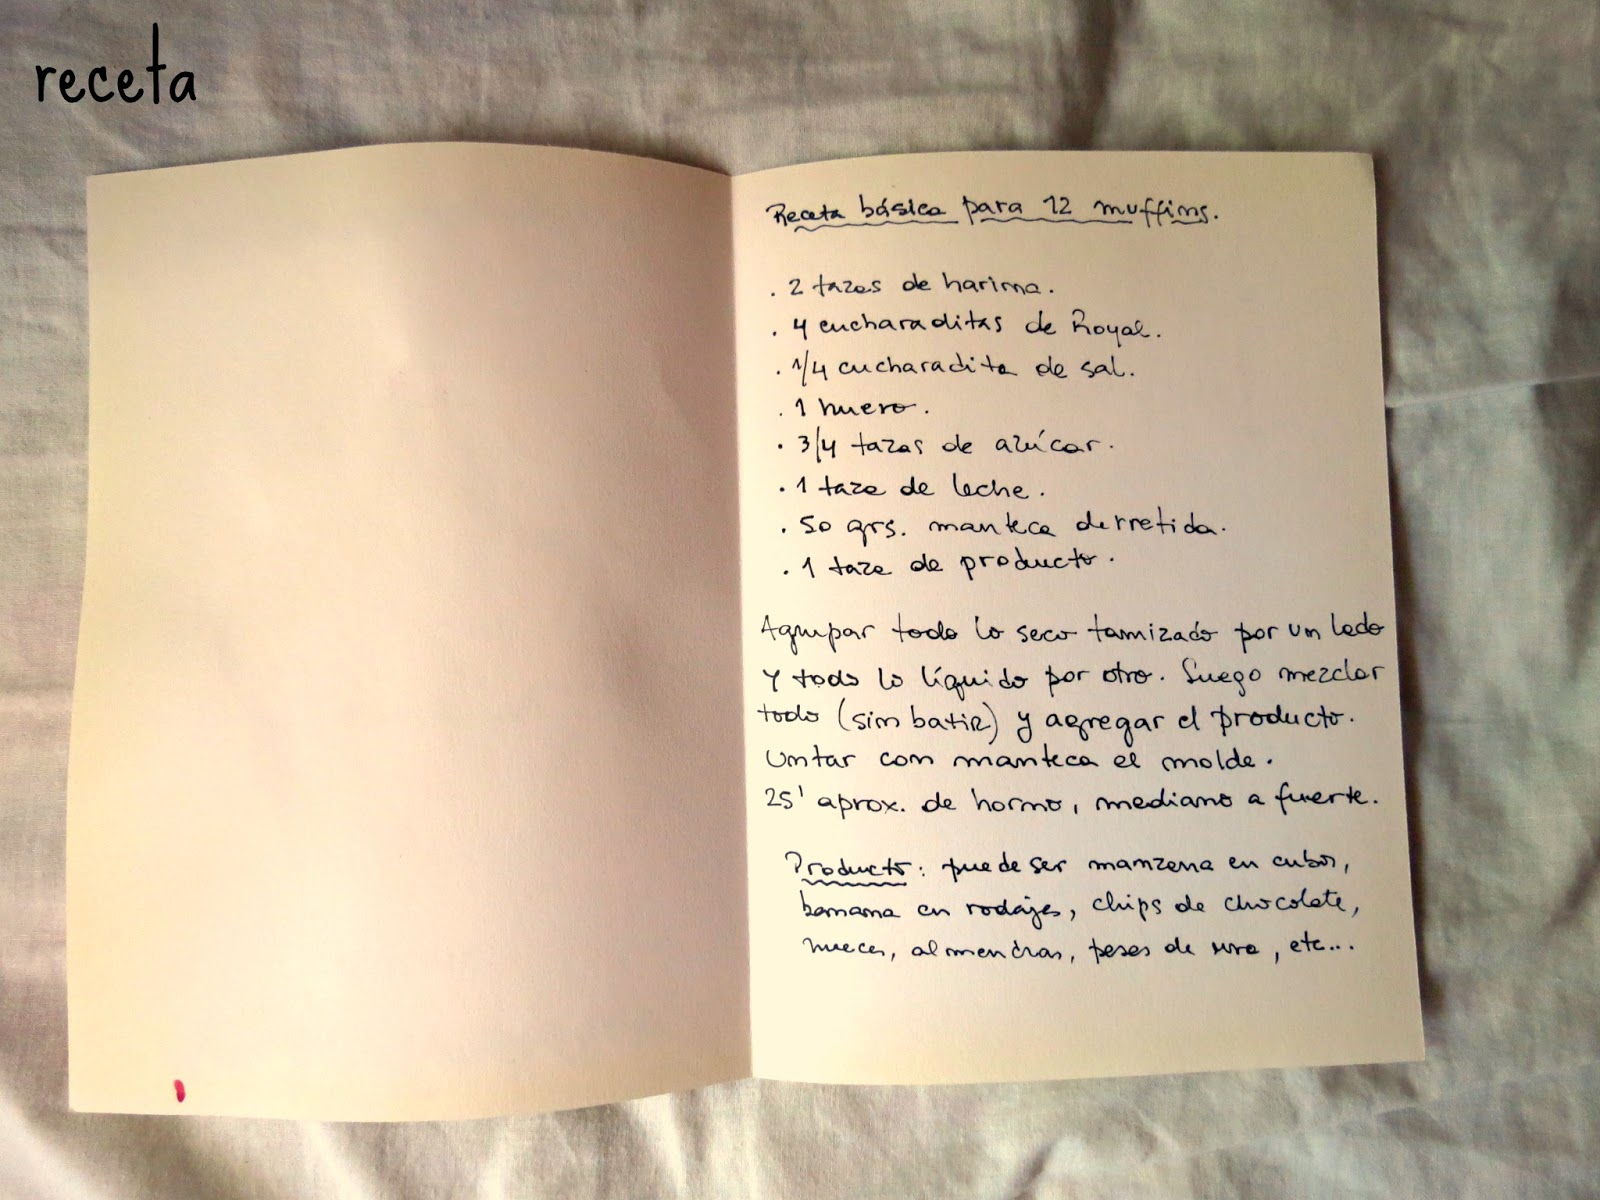 receta
Receta básica para 12 muffins.
. 2 tazas de harina.
. 4 cucharaditas de Royal.
. 1/4 cucharadita de sal.
. 1 huevo.
. 3/4 tazas de azúcar.
. 1 taza de leche.
. 50 grs. manteca derretida.
. 1 taza de producto.
Agrupar todo lo seco tamizado por un lado
y todo lo líquido por otro. Luego mezclar
todo (sin batir) y agregar el producto.
Untar con manteca el molde.
25' aprox. de horno, mediano a fuerte.
Producto: puede ser manzana en cubos,
banana en rodajas, chips de chocolate,
nueces, almendras, pasas de uva, etc...